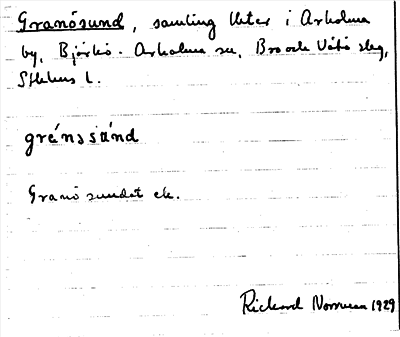 Granösund, samling tkter i Arholma
by, Björkö-Arholma sn, Bro och Vätö slg,
Sthlms l.
gránssúnd
Granö sundet ek.
Rickard 1929